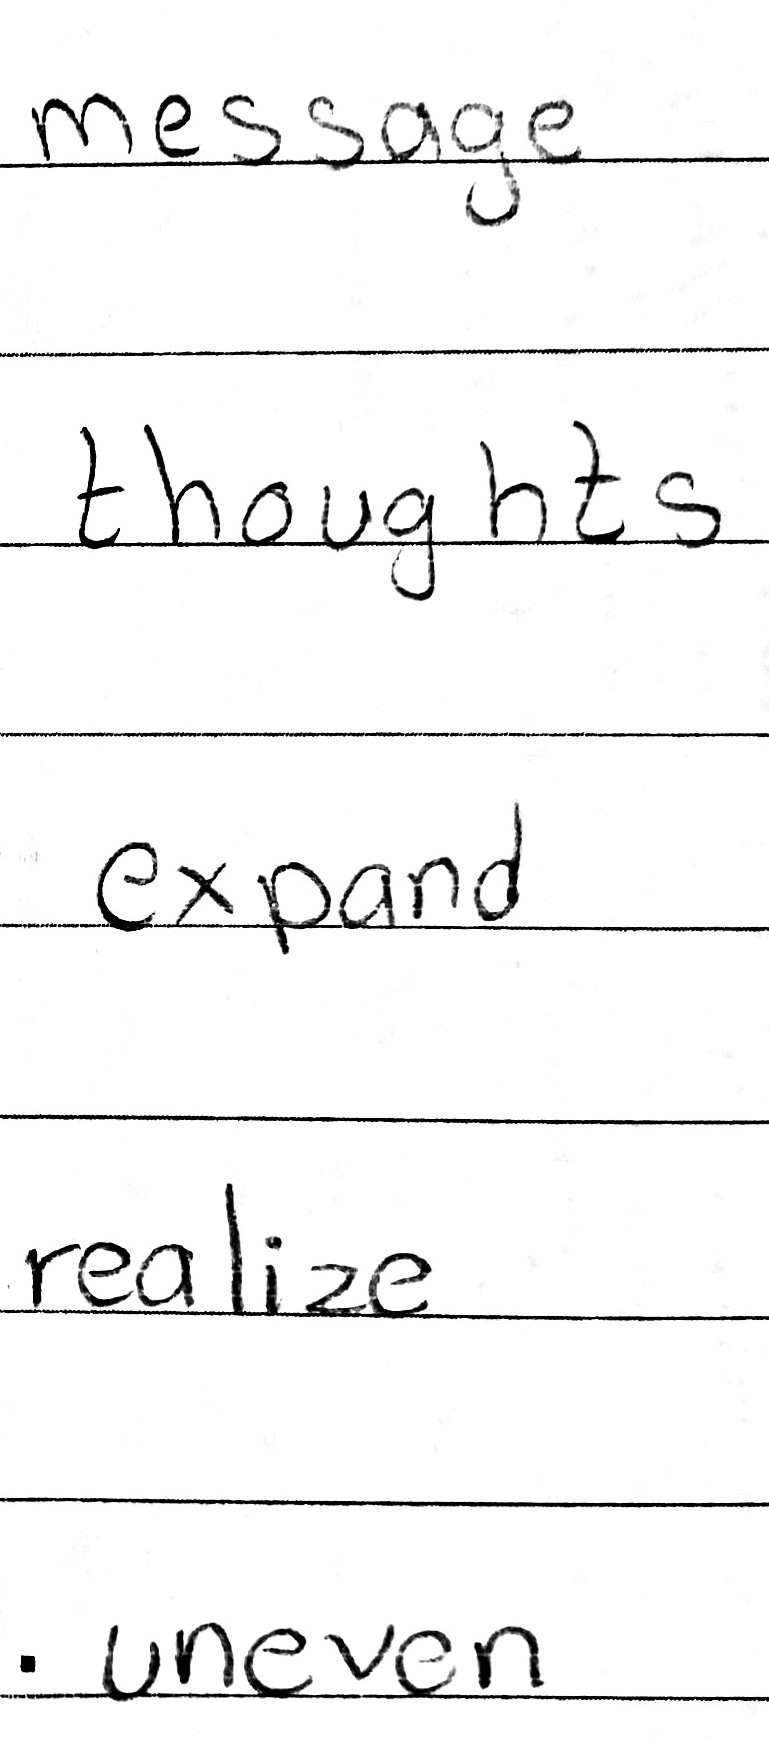 message
thoughts
expand
realize
. uneven